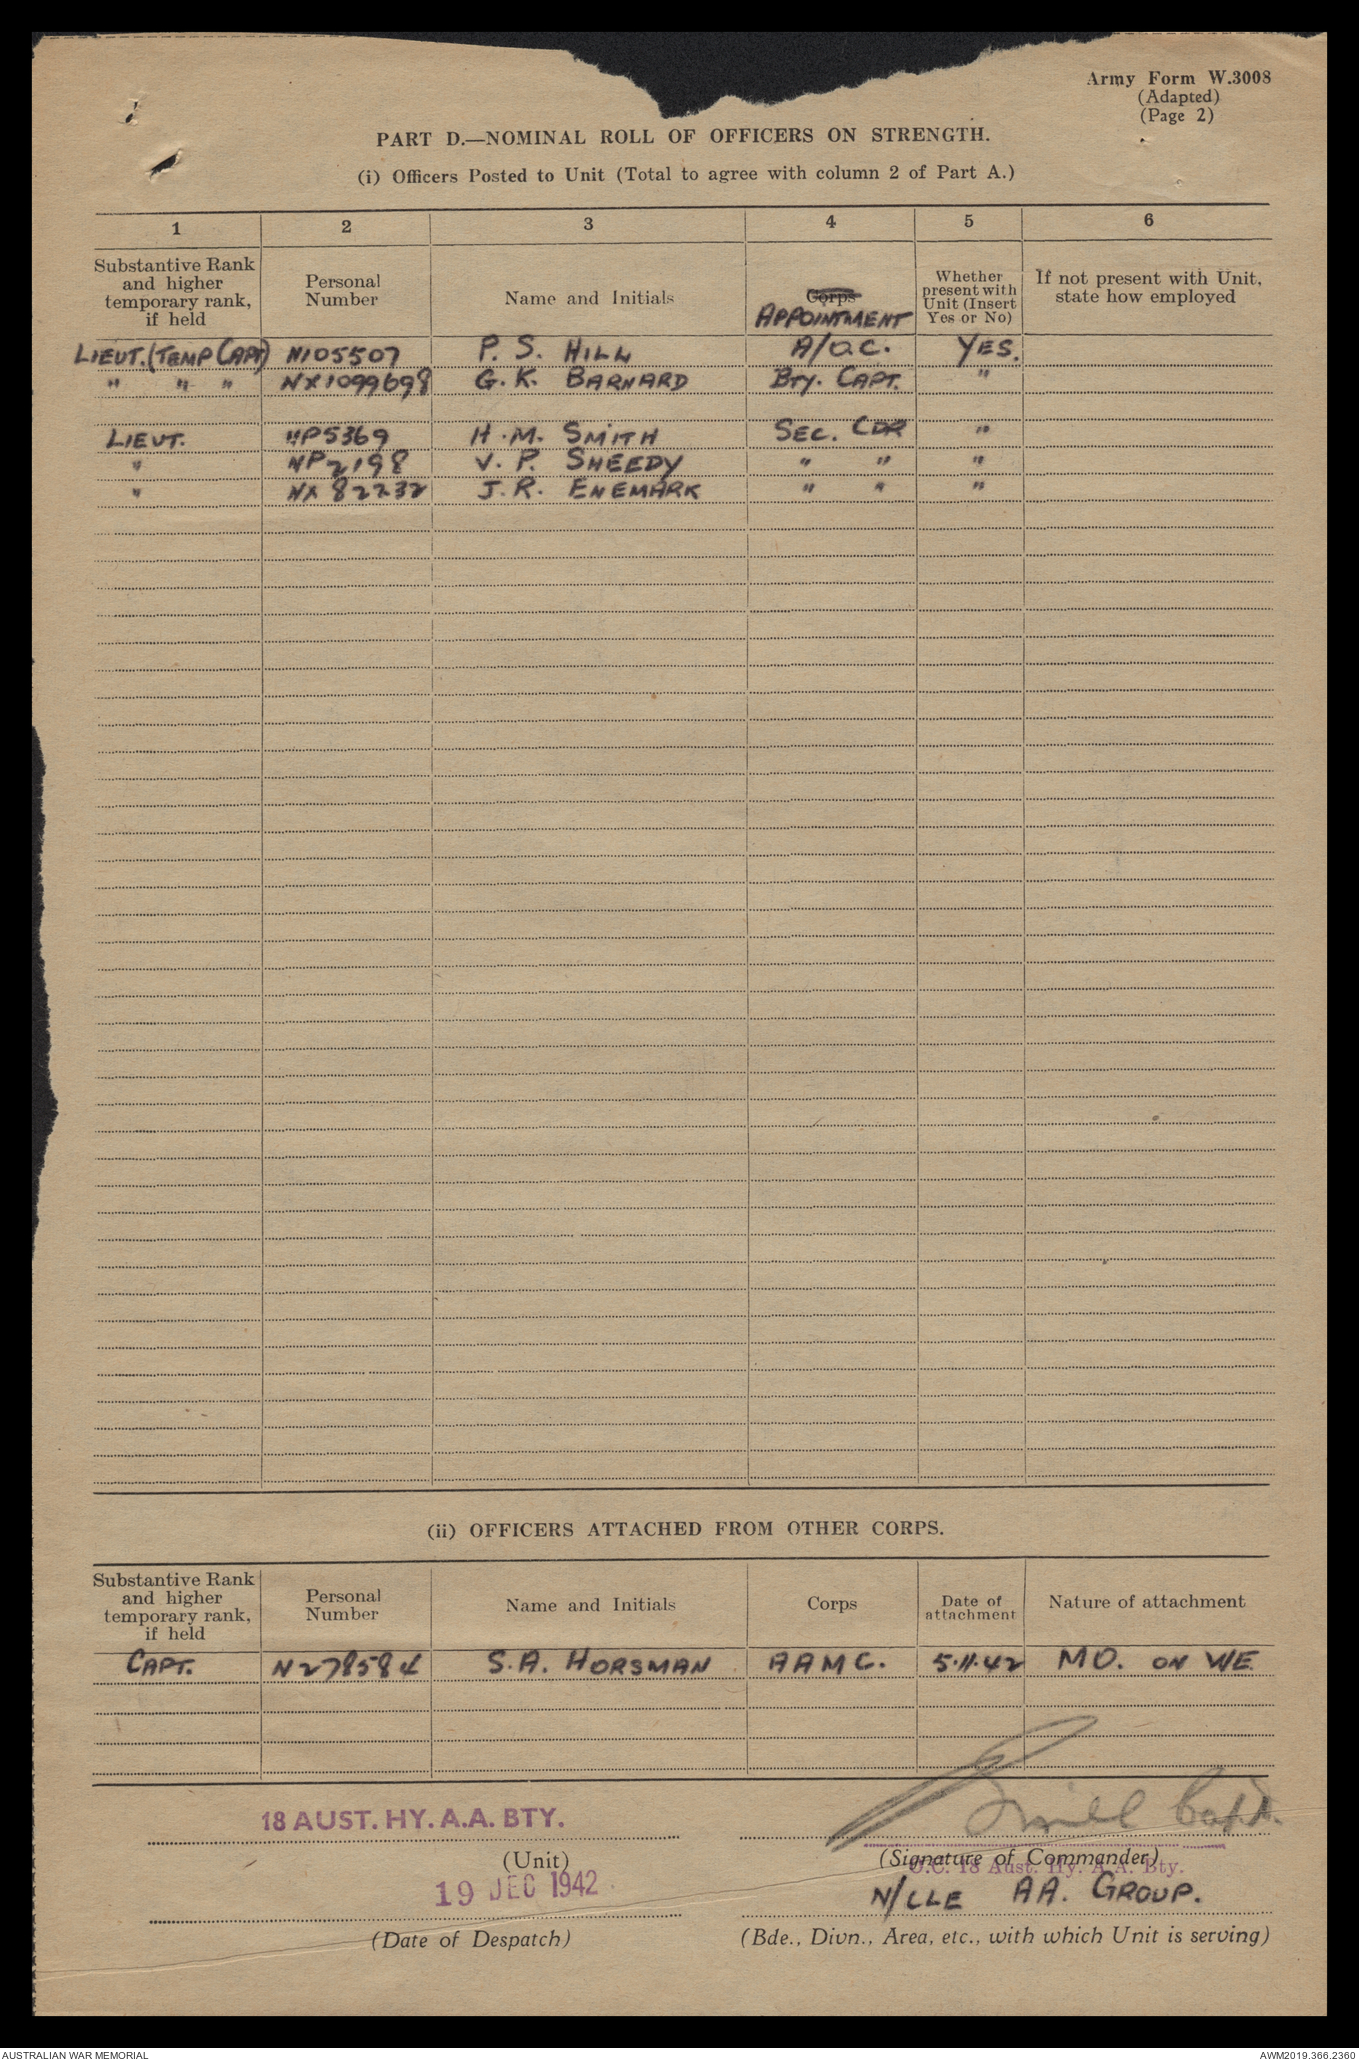 Army Form W.3008
(Adapted)
(Page 2)
PART D.—NOMINAL ROLL OF OFFICERS ON STRENGTH.
(i) Officers Posted to Unit (Total to agree with column 2 of Part A.)
1 2 3 4 5 6
Substantive Rank and higher temporary rank, if held Personal Number Name and Initials Corps APPOINTMENT Whether present with Unit (Insert Yes or No) If not present with Unit, state how employed
LIEUT. (TEMP CAPT) N105507 P. S. HILL A/O.C. YES.
" " " NX1099698 G. K. BARNARD BTY. CAPT. "
LIEUT. NP5369 H. M. SMITH SEC. CDR "
" NP2198 V. P. SHEEDY " " "
" NX 82232 J. R. ENEMARK " " "
(ii) OFFICERS ATTACHED FROM OTHER CORPS.
Substantive Rank and higher temporary rank, if held Personal Number Name and Initials Corps Date of attachment Nature of attachment
CAPT. N278584 S. A. HORSMAN AAMC. 5.11.42 MO. ON W/E
18 AUST. HY. A.A. BTY. Hill Capt.
(Unit) (Signature of Commander)
O.C. 18 Aust. Hy. A.A. Bty.
19 DEC 1942 N/CLE AA. GROUP.
(Date of Despatch) (Bde., Divn., Area, etc., with which Unit is serving)
AUSTRALIAN WAR MEMORIAL AWM2019.366.2360